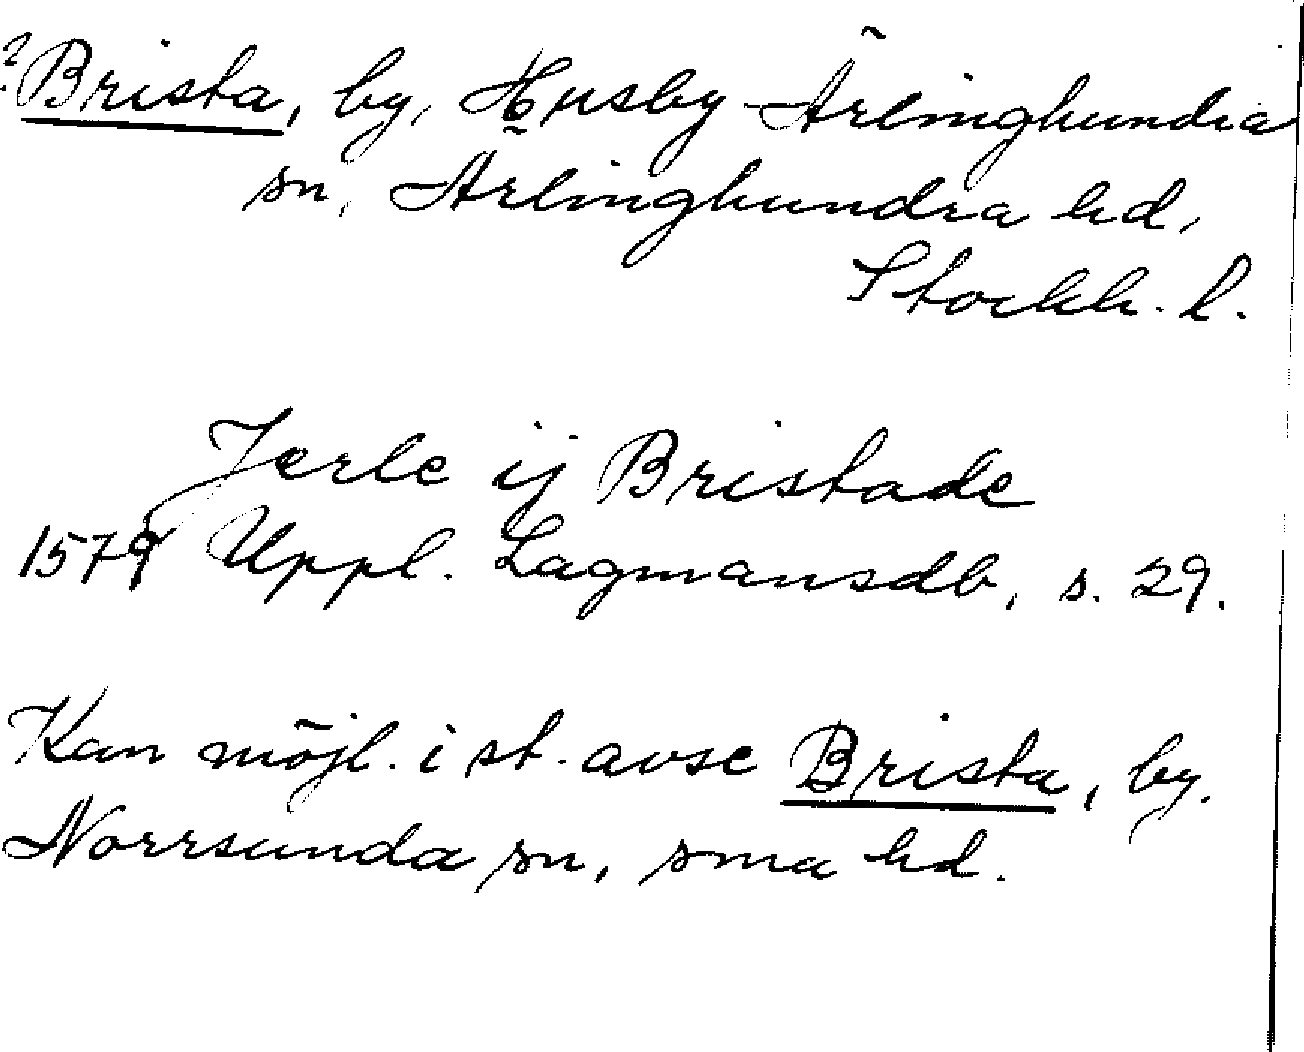 ? Brista, by, Husby-Ärlinghundra
sn, Ärlinghundra hd,
Stockh. l.
Jerle ij Bristade
1579 Uppl. Lagmansdb, s. 29.
Kan möjl. i st. avse Brista, by.
Norrsunda sn, sma hd.